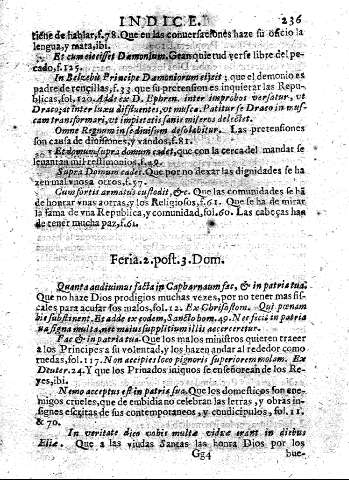 INDICE. 236
tiene de hablar, f.78. Que en las conuersaciones haze su oficio la
lengua, y mata, ibi.
Et cum eiecisset Dæmonium. Gran quietud verse libre del pe-
cado, f.125.
In Belzebù Principe Dæmoniorum eijcit; que el demonio es
padre de renzillas, f.33. que su pretension es inquierar las Repu-
blicas, fol.120. Adde ex D. Ephren. inter improbos versatur, vt
Draco; at inter luxu diffluentes, vt musca. Patitur se Draco in mus-
cam transformari, vt impietatis sanie miseros delectet.
Omne Regnum in se diuisum desolabitur. Las pretensiones
son causa de diuisiones, y vandos, f.81.
Et domus supra domum cadet, que con la cerca del mandar se
leuantan mil dissensiones, f.49.
Supra Domum cadet. Que por no dexar las dignidades se ha
zen mal vnos a otros, f.57.
Cum fortis armatus custodit, &c. Que las comunidades se hã
de honrar vnas a otras, y los Religiosos, f.61. Que se ha de mirar
la fama de vna Republica, y comunidad, fol.60. Las cabeças han
de tener mucha paz, f.61.
Feria.2.post.3.Dom.
Quanta audiuimus facta in Capharnaum fac, & in patria tua.
Que no haze Dios prodigios muchas vezes, por no tener mas fis-
cales para acusar los malos, fol.12. Ex Chrisostom. Qui pœnam
hic sustinent. Et adde ex eodem, Sancto hom.49. Nec fecit in patria
sua signa multa, nec maius supplitium illis accerceretur.
Fac & in patria tua. Que los malos ministros quieren traeer
a los Principes a su voluntad, y los hazen andar al rededor como
ruedas, fol.117. Non accipies loco pignoris superiorem molam. Ex
Deuter.24. Y que los Priuados iniquos se enseñorean de los Re-
yes, ibi.
Nemo acceptus est in patria sua. Que los domesticos son ene-
migos crueles, que de embidia no celebran las letras, y obras in-
signes escritas de sus contemporaneos, y condicipulos, fol. 11.
& 70.
In veritate dico vobis multæ viduæ erant in diebus
Eliæ. Que a las viudas Santas las honra Dios por los
Gg4 bue-